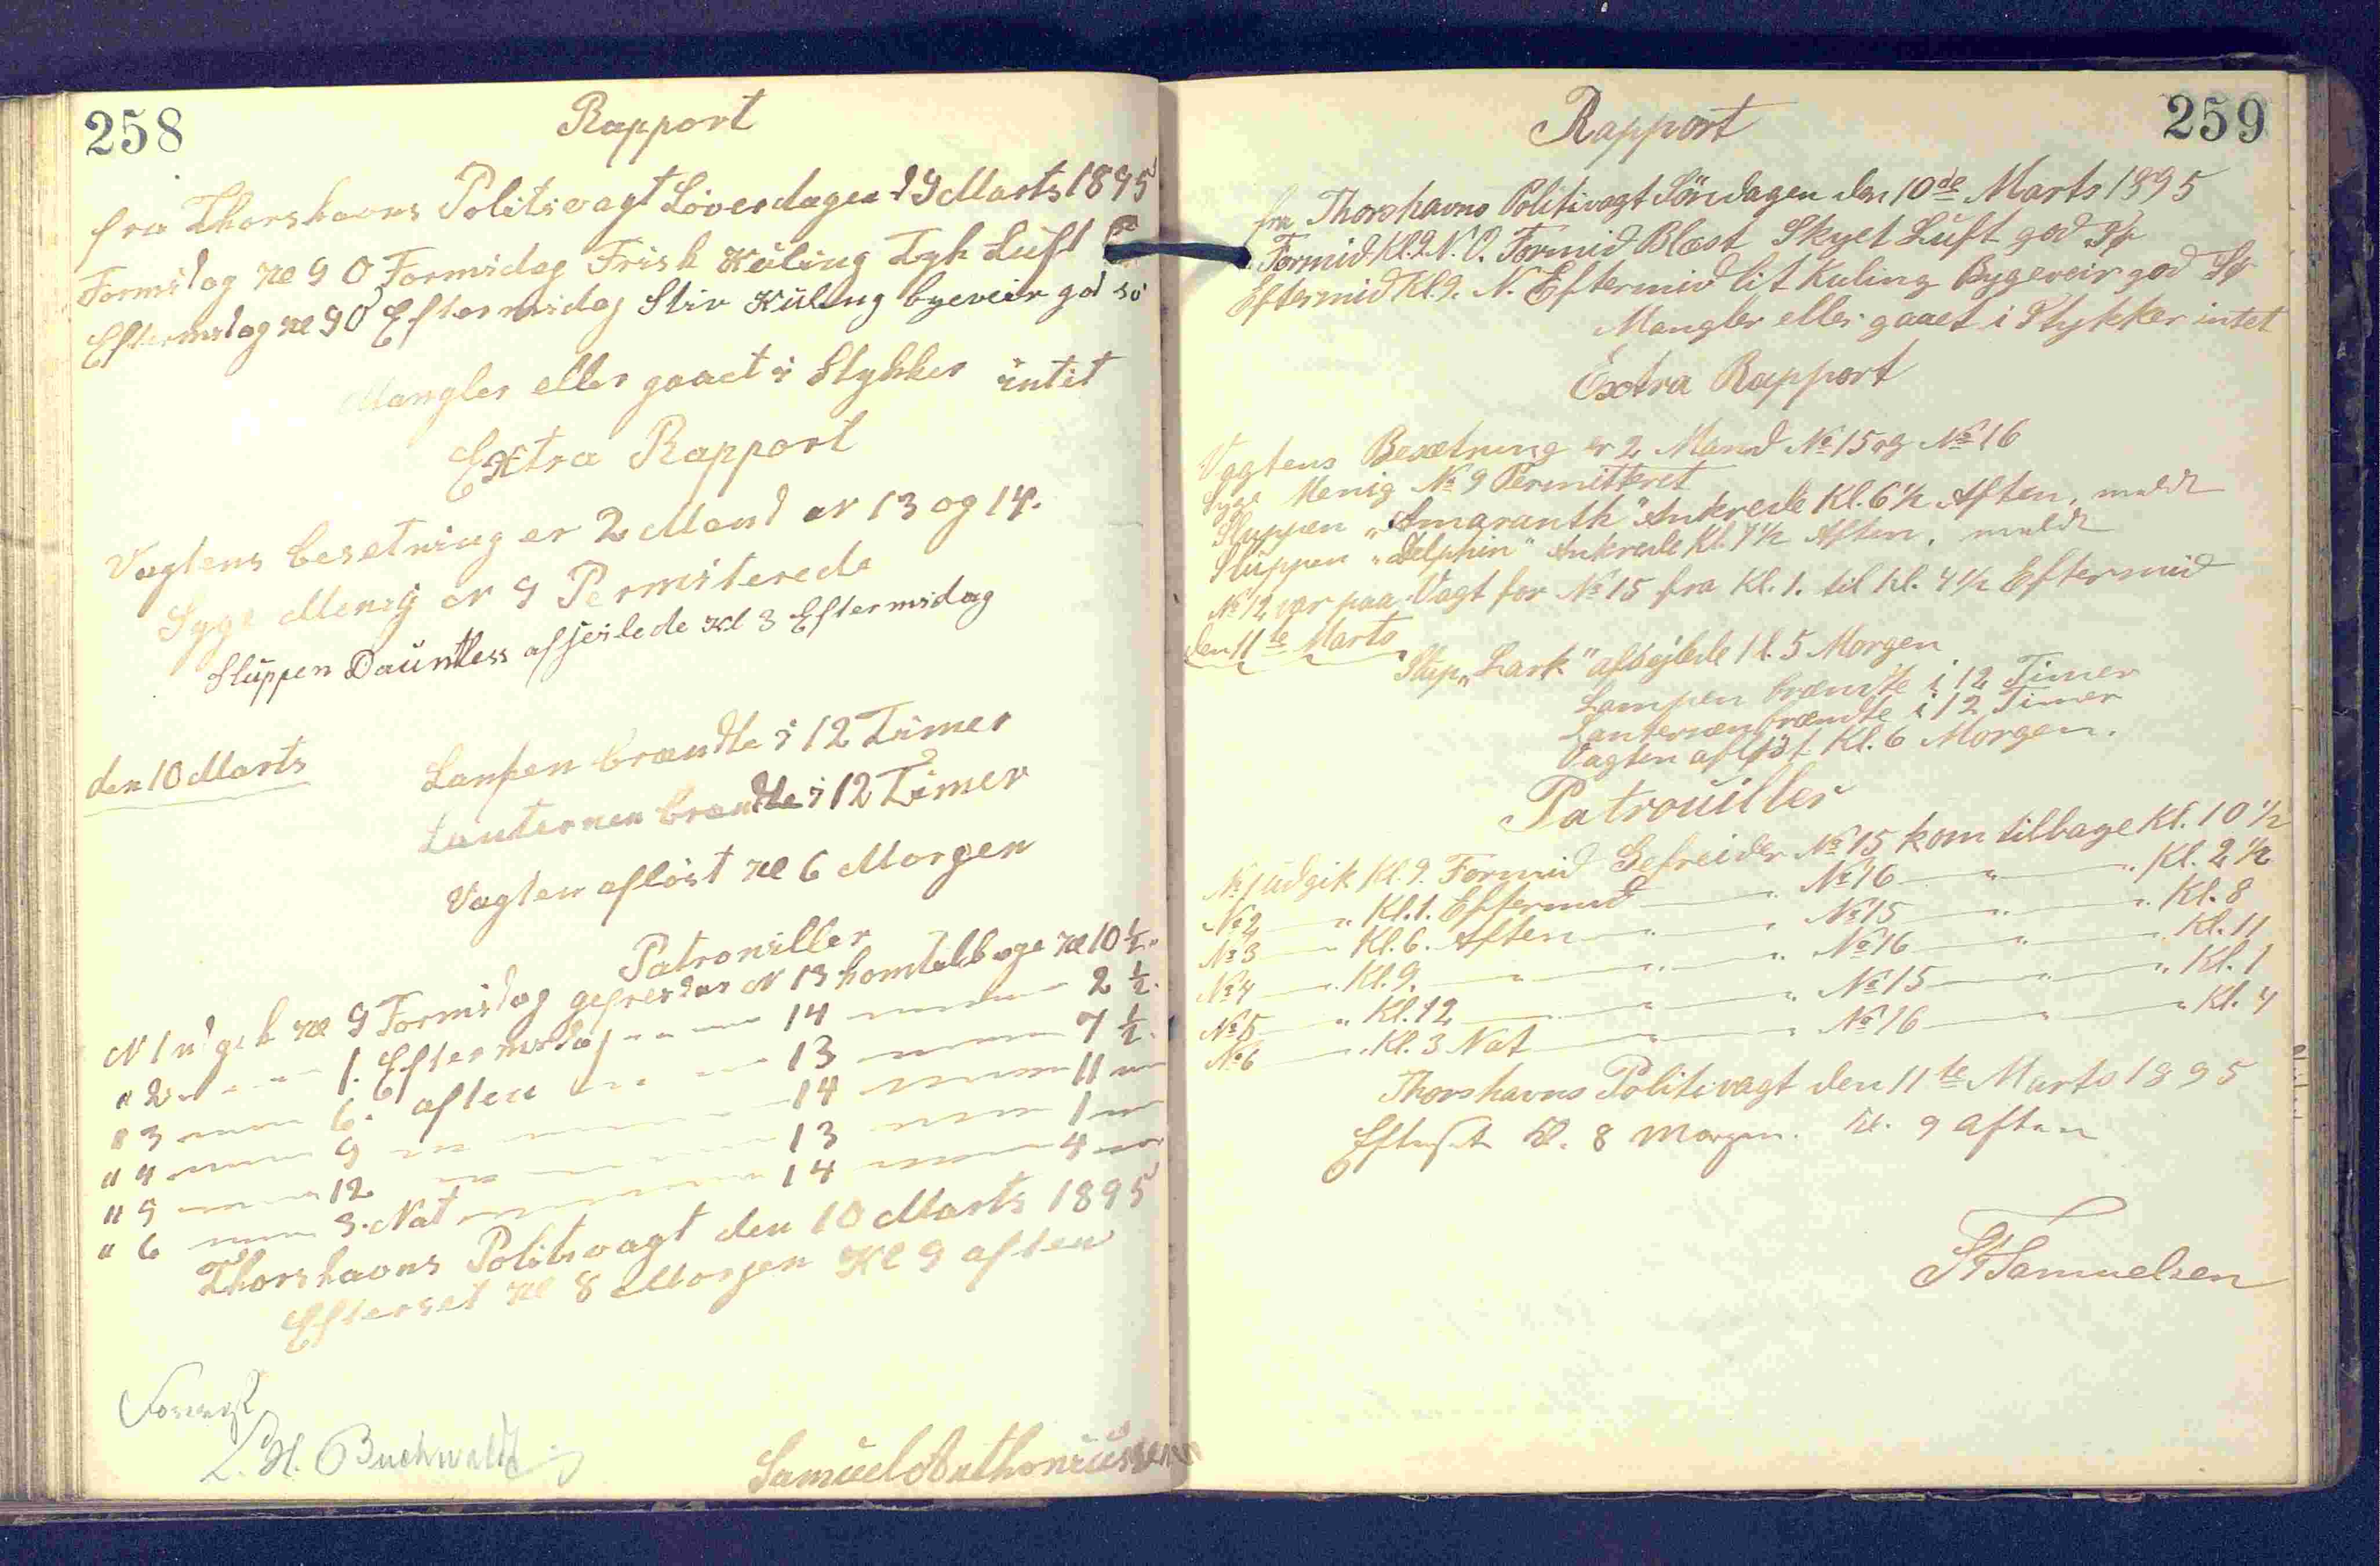 258
Rapport
fra Thorshavns Politivagt Löverdagen d 9 Marts 1895
Formidag Kl 9 O Formidag Frisk Küling Tyk Lüft
Eftermidag Kl 9 O Eftermidag Stiv Küling byeveir god sö
Mangler eller gaaet i Stykker intit
Extra Rapport
Vagtens besetning er 2 Mand Nr 13 og 14.
Syge Menig Nr 9 Permiterede
Sluppen Dauntless afseilede Kl 3 Eftermidag
den 10 Marts
Lampen brændte i 12 Timer
Lanternen brændte i 12 Timer
Vagten aflöst Kl 6 Morgen
Patroniller
N 1 udgik Kl 9 Formidag gefreider N 13 kom tilbage Kl 10 ½ "
" 2 " 1. Eftermidag " " 14 " 2 ½ "
" 3 " 6. aften " " 13 " 7 ½ "
" 4 " 9 " " 14 " 11 "
" 5 " 12 " " 13 " 1 "
" 6 " 3. Nat " 14 " 4 "
Thorshavns Politivagt den 10 Marts 1895
Efterset Kl 8 Morgen Kl 9 aften
Forevist
L. H. Buchwaldt
Samüel Anthoniüssenn
259
Rapport
fra Thorshavns Politivagt Söndagen den 10de Marts 1895
Formid Kl. 9. N. O. Formid Blæst Skyet Luft god Sö
Eftermid Kl. 9. N. Eftermid lit Kuling Bygeveir god Sö
Mangler eller gaaet i Stykker intet
Extra Rapport
Vagtens Besætning er 2 Mand No 15 og No 16
Syge Menig No 9 Permitteret
Sluppen "Amaranth" Ankrede Kl. 6 ½ Aften, meldt
Sluppen "Delphin" Ankrede Kl. 7 ½ Aften, meldt
No 12 var paa Vagt for No 15 fra Kl. 1. til Kl. 4 ½ Eftermid
den 11te Marts
Slup "Lark" afsejlede Kl. 5 Morgen
Lampen brændte i 12 Timer
Lanternen brændte i 12 Timer
Vagten aflöst Kl. 6 Morgen.
Patrouiller
No 1 udgik Kl. 9. Formid Gefreider No 15 kom tilbage Kl. 10 ½
No 2 " Kl. 1. Eftermid " No 16 " " Kl. 2 ½
No 3 " Kl. 6. Aften " " No 15 " " Kl. 8
No 4 " Kl. 9. " " No 16 " " Kl. 11
No 5 " Kl. 12 " " No 15 " " Kl. 1
No 6 " Kl. 3 Nat " " No 16 " " Kl. 4
Thorshavns Politivagt den 11te Marts 1895
Efterset Kl. 8 Morgen. Kl. 9 Aften
Samuelsen